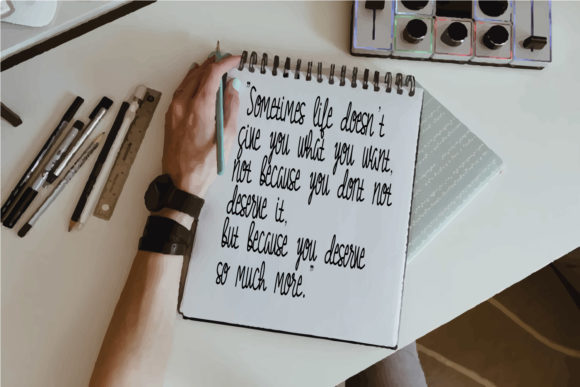 "Sometimes life doesn't
give you what you want,
not because you dont not
deserve it,
but because you deserve
so much more."